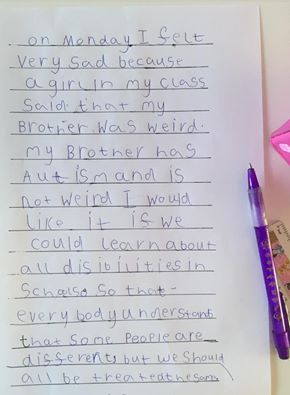 on Monday I felt
very sad because
a girl in my class
said that my
Brother was weird.
my Brother has
Autism and is
not weird I would
like it if we
could learn about
all disibilities in
schools so that
everybody understants
that some people are
different, but we should
all be treated the same